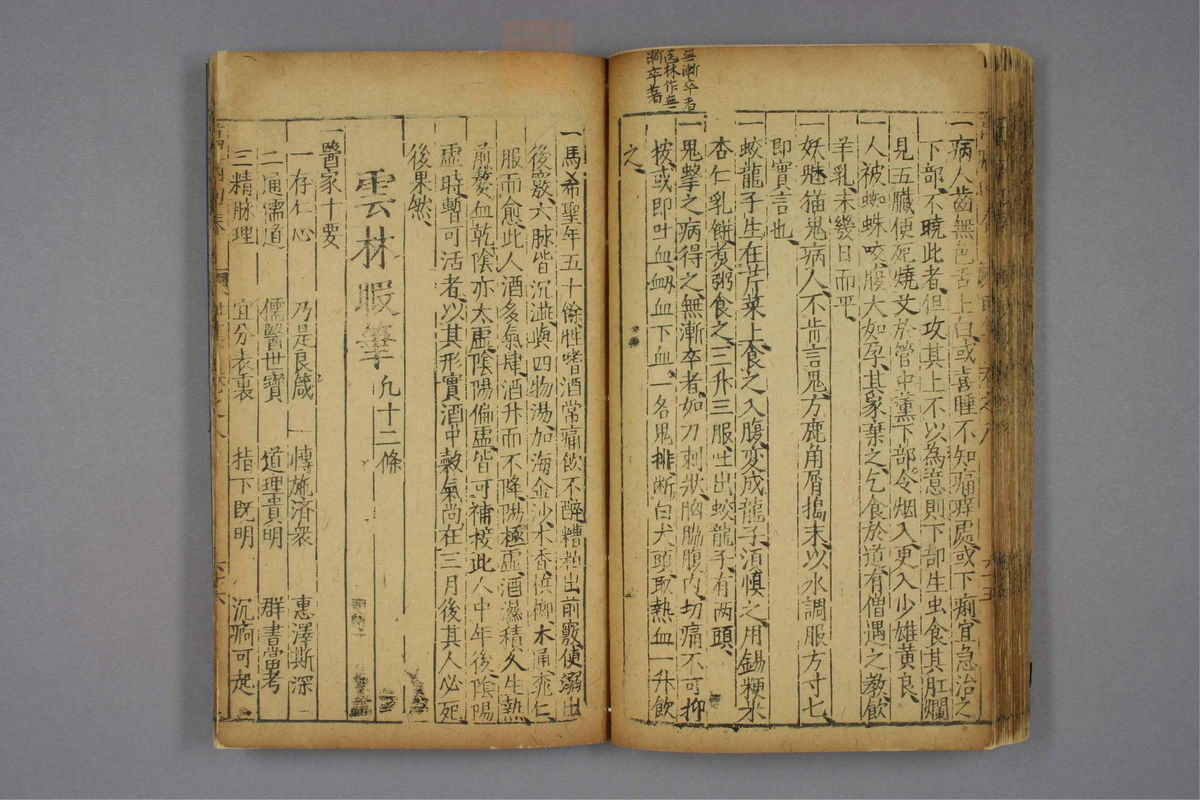 無漸卒者
医林作無
漸卒著
一病人齒無色舌上白或喜睡不知痛痒處或下痢宜急治之
下部不曉此者但攻其上不以為意則下部生虫食其肛爛
見五臟便死燒艾於管中薰下部令烟入更入少雄黄良
一人被蜘蛛咬腹大如孕其家棄之乞食於道有僧遇之教飲
羊乳未幾日而平
一妖魅猫鬼病人不肯言鬼方鹿角屑搗末以水調服方寸七
即實言也
一蛟龍子生在芹菜上食之入腹変成龍子須慎之用錫粳米
杏仁乳餅煮粥食之三升三服吐出蛟龍子有两頭
一鬼擊之病得之無漸卒者如刀刺狀胸脇腹内切痛不可抑
按或即吐血衂血下血一各鬼排断白犬頭取熱血一升飲
之
一馬希聖年五十餘性嗜酒常痛飲不醉糟粕出前竅便溺出
後竅六脉皆沉澁與四物湯加海金沙木香浜榔木通桃仁
服而愈此人酒多氣肆酒升而不降陽極虛酒濕積久生熱
煎熬血乾陰亦太虛陰陽偏虛皆可補接此人中年後陰陽
虛時暫可活者以其形實酒中穀氣尚在三月後其人必死
後果然
雲林暇筆 九十二條
一醫家十要
一存仁心 乃是良箴 博施済衆 惠澤斯深
二通儒道 儒醫世寶 道理貴明 群書當考
三精脉理 宜分表裏 指下既明 沉痾可起